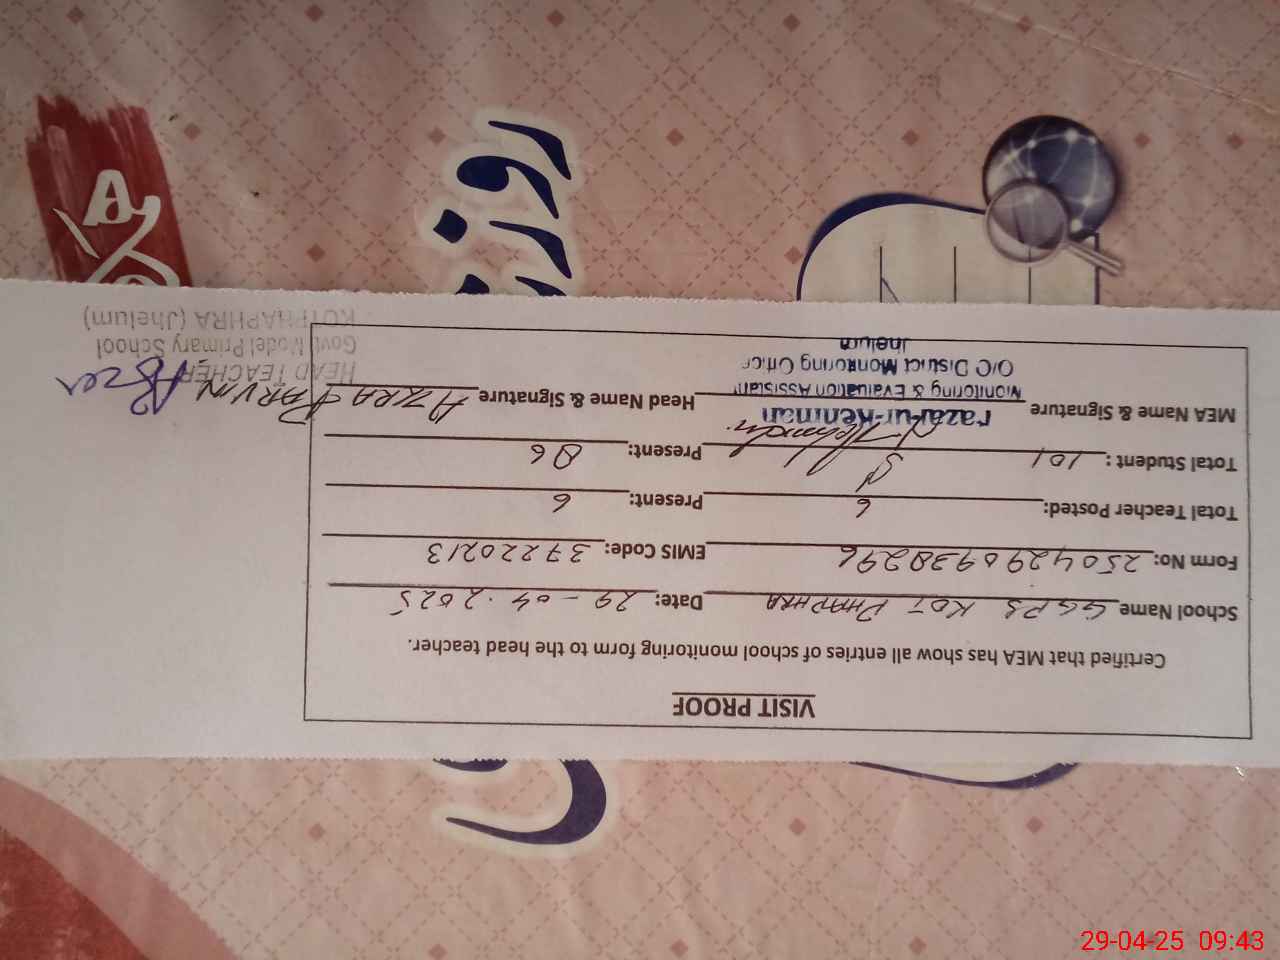 VISIT PROOF
Certified that MEA has show all entries of school monitoring form to the head teacher.
School Name GGPS KOT PHAPHRA Date: 29-04-2025
Form No: 250429093829 EMIS Code: 37220213
Total Teacher Posted: 6 Present: 6
Total Student: 101 Present: 86
MEA Name & Signature Fazal-ur-Rehman Head Name & Signature AZRA PARVIN
Monitoring & Evaluation Assistant
O/C District Monitoring Office
Jhelum
HEAD TEACHER
Govt Model Primary School
KOTPHAPHRA (Jhelum)
روز
29-04-25 09:43